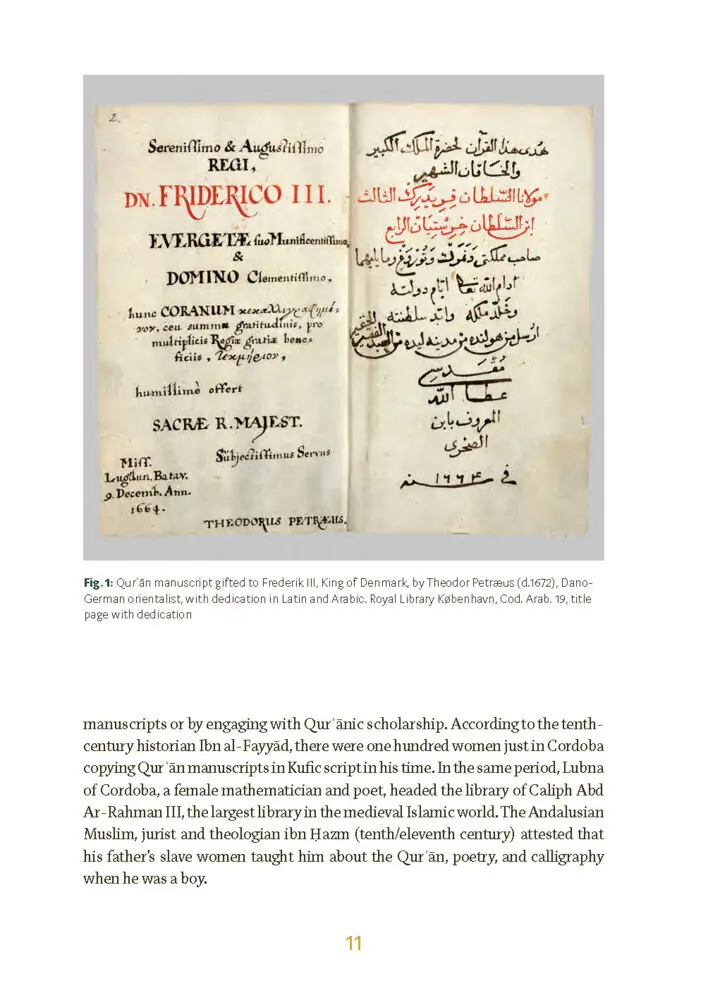 2.
Sereniſſimo & Auguſtiſſimo
REGI,
DN. FRIDERICO III.
EVERGETÆ ſuo Munificentiſſimo,
&
DOMINO Clementiſſimo,
hunc CORANUM κεκαλλιγραφημέ-
νον, ceu summæ gratitudinis, pro
multiplicis Regiæ gratiæ bene-
ficiis, τεκμήριον,
humillimè offert
SACRÆ R. MAJEST.
Subjectiſſimus Servus
Miſſ.
Lugdun. Batav.
9. Decemb. Ann.
1664.
THEODORUS PETRÆUS.
هدى هذا القرآن لحضرة الملك الكبير
والخاقان الشهير
مولانا السلطان فريدرك الثالث
ابن السلطان خرستيان الرابع
صاحب مملكتي دنمرك ونوروغ وما يليهما
ادام الله تعالى ايام دولته
وخلد ملكه وابد سلطنته
ارسل من هولنده من مدينه ليده من العبد الفقير الحقير
مقدسي
عطا الله
المعروف بابن
الصخري
في سنه ١٦٦٤
Fig. 1: Qurʾān manuscript gifted to Frederik III, King of Denmark, by Theodor Petræus (d.1672), Dano-
German orientalist, with dedication in Latin and Arabic. Royal Library København, Cod. Arab. 19, title
page with dedication
manuscripts or by engaging with Qurʾānic scholarship. According to the tenth-
century historian Ibn al-Fayyāḍ, there were one hundred women just in Cordoba
copying Qurʾān manuscripts in Kufic script in his time. In the same period, Lubna
of Cordoba, a female mathematician and poet, headed the library of Caliph Abd
Ar-Rahman III, the largest library in the medieval Islamic world. The Andalusian
Muslim, jurist and theologian ibn Ḥazm (tenth/eleventh century) attested that
his father’s slave women taught him about the Qurʾān, poetry, and calligraphy
when he was a boy.
11